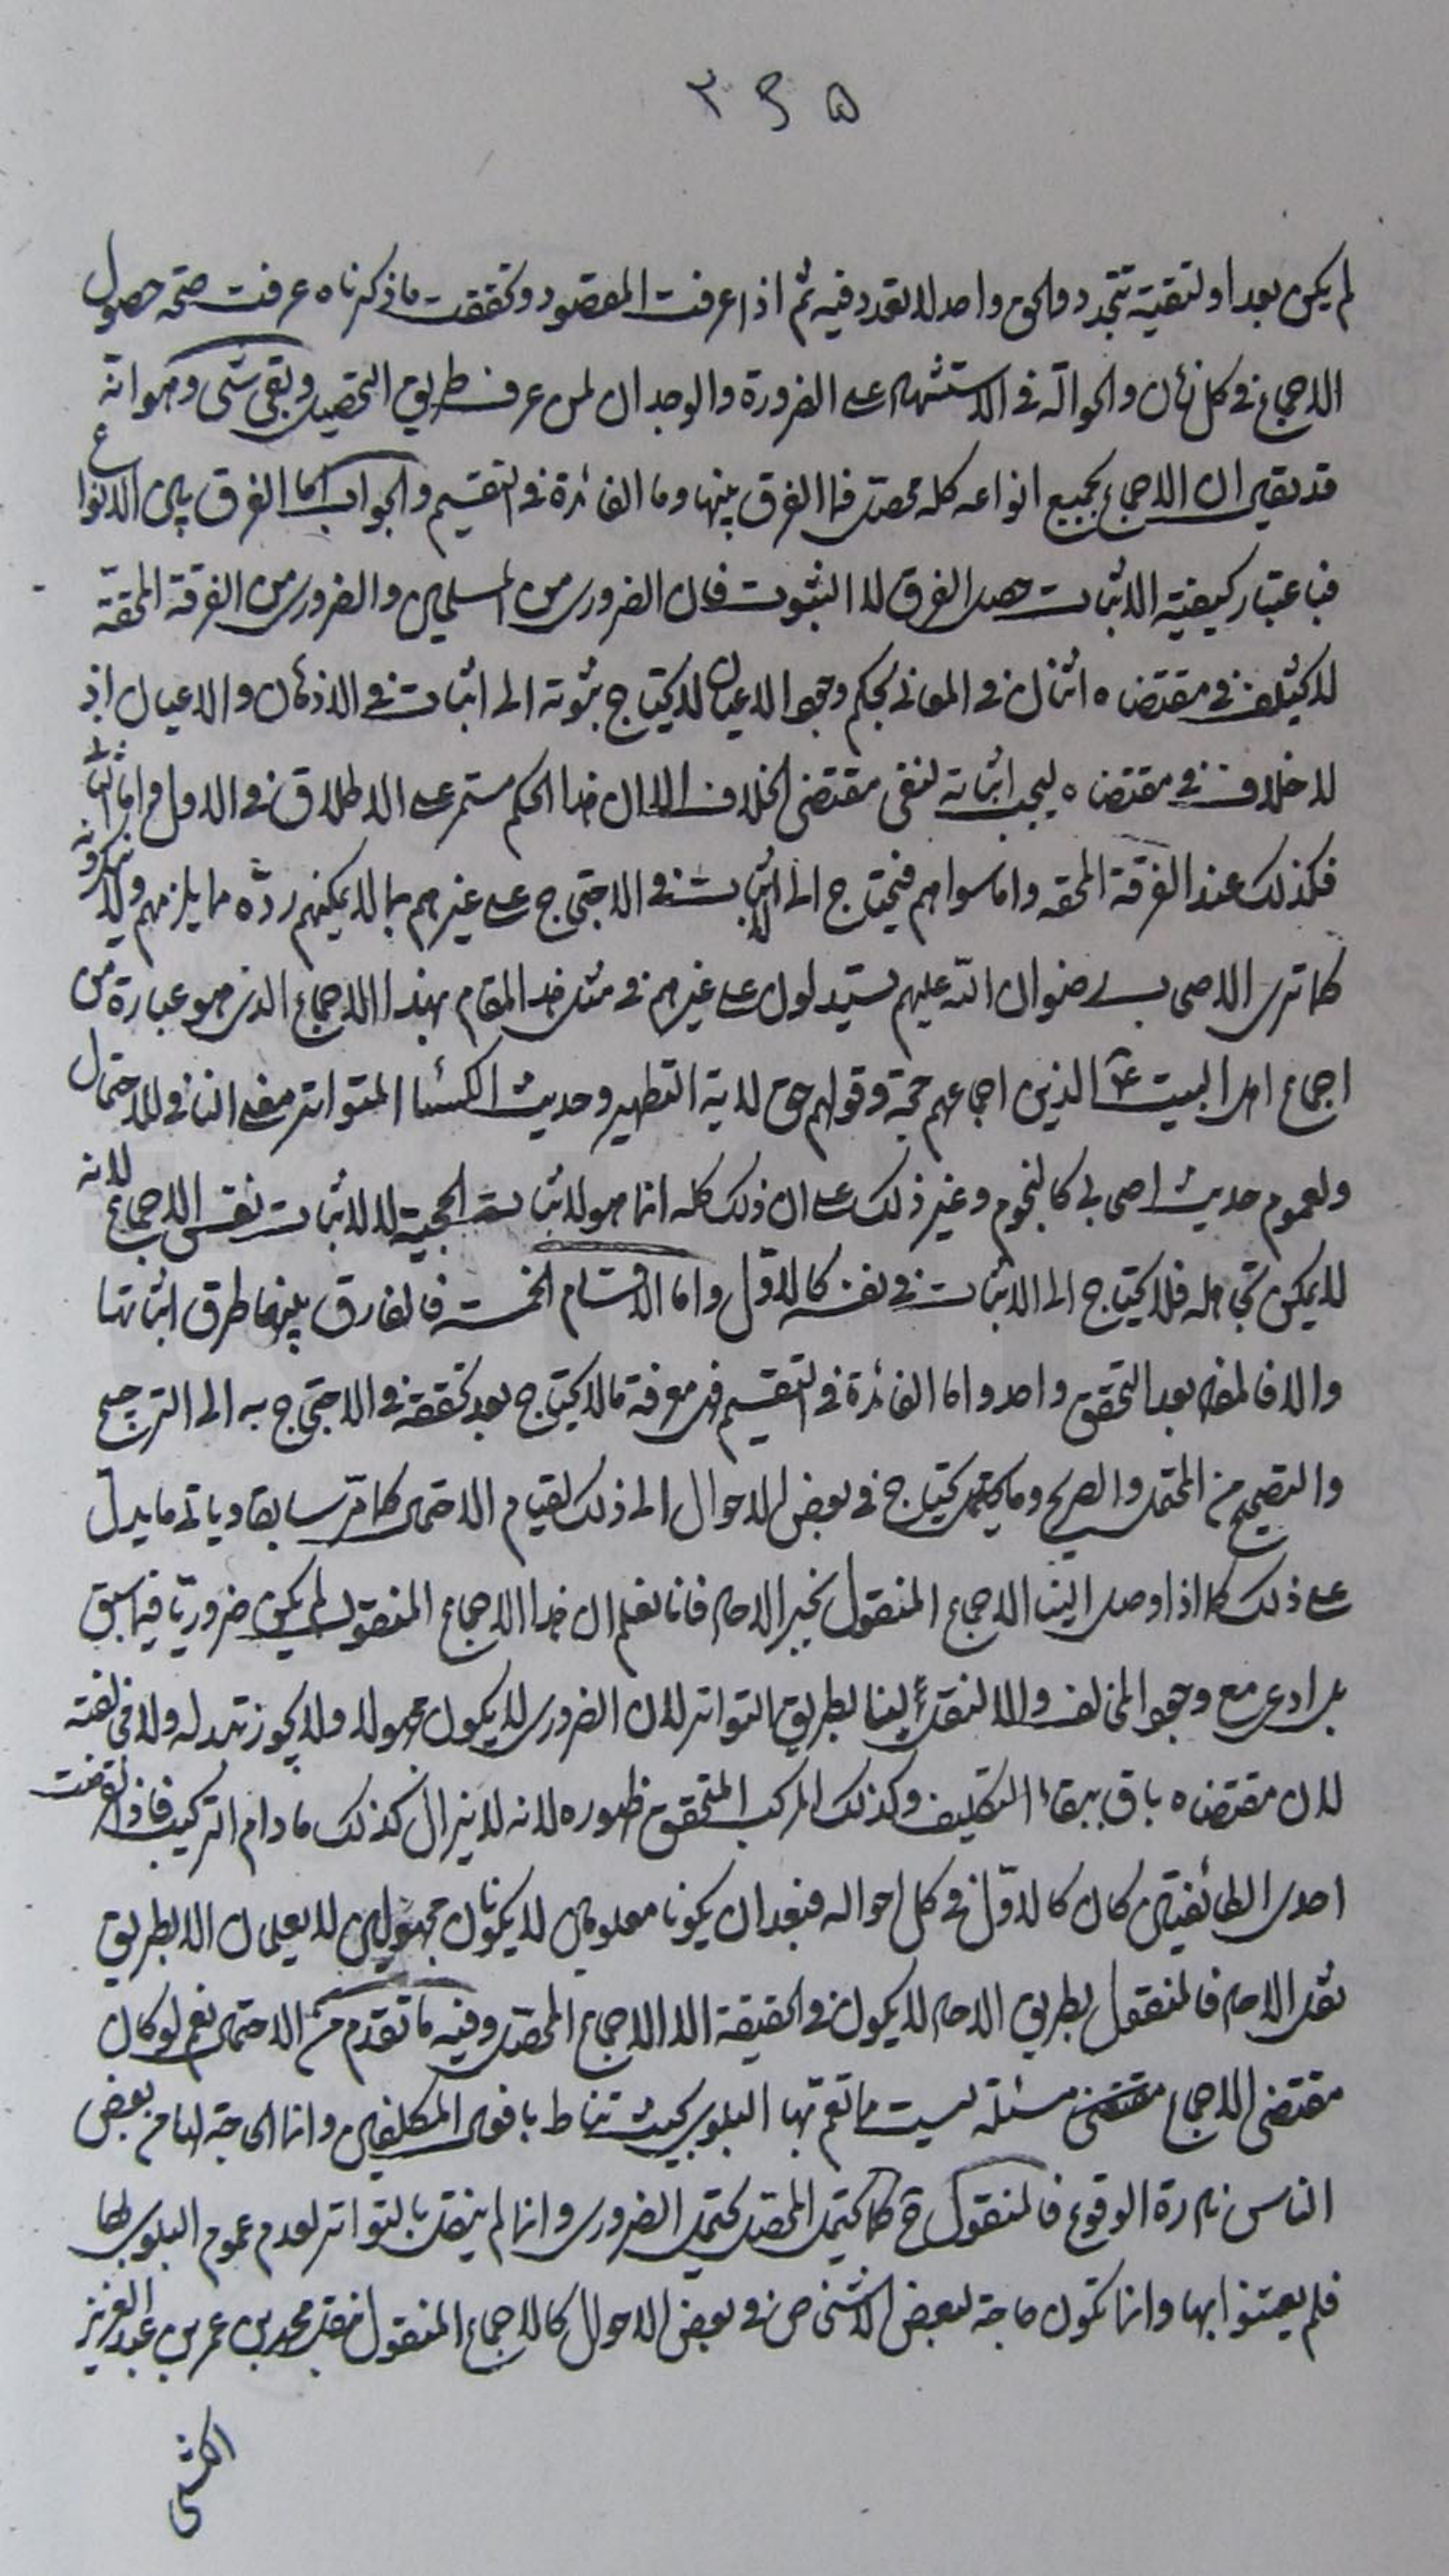 ۳۹۵
لم يكن بعد او لتقية تتجدد والحق واحد لا تعدد فيه ثم اذا عرفت المقصود وتحققت ما ذكرناه عرفت صحة حصول
الاجماع في كل زمان والحوالة في الاستشهاد على الضرورة والوجدان لمن عرف طريق التحصيل وبقي شيء وهو انه
قد يقال ان الاجماع بجميع انواعه كله محصل فما الفرق بينها وما الفائدة في التقسيم والجواب اما الفرق بين الانواع
فباعتبار كيفية الاثبات حصل الفرق لا الثبوت فان الضروري من المسلمين والضروري من الفرقة المحقة
لا يختلف في مقتضاه اثنان في المعاني بحكم وجود الاعيان لا يحتاج ثبوته الى اثبات في الاذهان والاعيان اذ
لا خلاف في مقتضاه ليجب اثباته لنفي مقتضى الخلاف الا ان هذا الحكم مستمر على الاطلاق في الاول واما الثاني
فكذلك عند الفرقة المحقة واما سواهم فيحتاج الى الاثبات في الاحتجاج على غيرهم بما لا يمكنهم رده مما يلزمهم ولا ينكرونه
كما ترى الاصحاب رضوان الله عليهم يستدلون على غيرهم في مثل هذا المقام بهذا الاجماع الذي هو عبارة من
اجماع اهل البيت ع الذين اجماعهم حجة وقولهم حق لاية التطهير وحديث الكساء المتواتر معنى النافي للاحتمال
ولعموم حديث اصحابي كالنجوم وغير ذلك على ان ذلك كله انما هو لاثبات الحجية لا لاثبات نفس الاجماع لانه
لا يمكن تجاهله فلا يحتاج الى الاثبات في نفسه كالاول واما الاقسام الخمسة فالفارق بينها طرق اثباتها
والا فالمفاد بعد التحقق واحد واما الفائدة في التقسيم فهي معرفة ما لا يحتاج بعد تحققه في الاحتجاج به الى الترجيح
والتصحيح من المحتمل والصريح وما يحتمل يحتاج في بعض الاحوال الى ذلك لقيام الاحتمال كما مر سابقا وياتي ما يدل
على ذلك كما اذا وصل الينا الاجماع المنقول بخبر الاحاد فانا نعلم ان هذا الاجماع المنقول لم يكن ضروريا فيما سبق
بل ادعى مع وجود المخالف والا لنقل الينا بطريق التواتر لان الضروري لا يكون مجهولا ولا يجوز تبدله ولا مخالفته
لان مقتضاه باق ببقاء التكليف وكذلك المركب المتحقق ظهوره لانه لا يزال كذلك ما دام التركيب فاذا انقرضت
احدى الطائفتين كان كالاول في كل احواله فبعد ان يكونا معلومين لا يكونان مجهولين لا يعلمان الا بطريق
نقل الاحاد فالمنقول بطريق الاحاد لا يكون في الحقيقة الا الاجماع المحصل وفيه ما تقدم من الاحتمال نعم لو كان
مقتضى الاجماع مقتضى مسئلة ليست مما تعم بها البلوى بحيث تناط بافعال المكلفين وانما الحاجة اليها من بعض
الناس نادرة الوقوع فالمنقول ح كما يحتمل المحصل يحتمل الضروري وانما لم ينقل بالتواتر لعدم عموم البلوى بها
فلم يعتنوا بها وانما تكون حاجة لبعض الاشخاص في بعض الاحوال كالاجماع المنقول بنقل محمد بن عمر بن عبد العزيز
الكشي